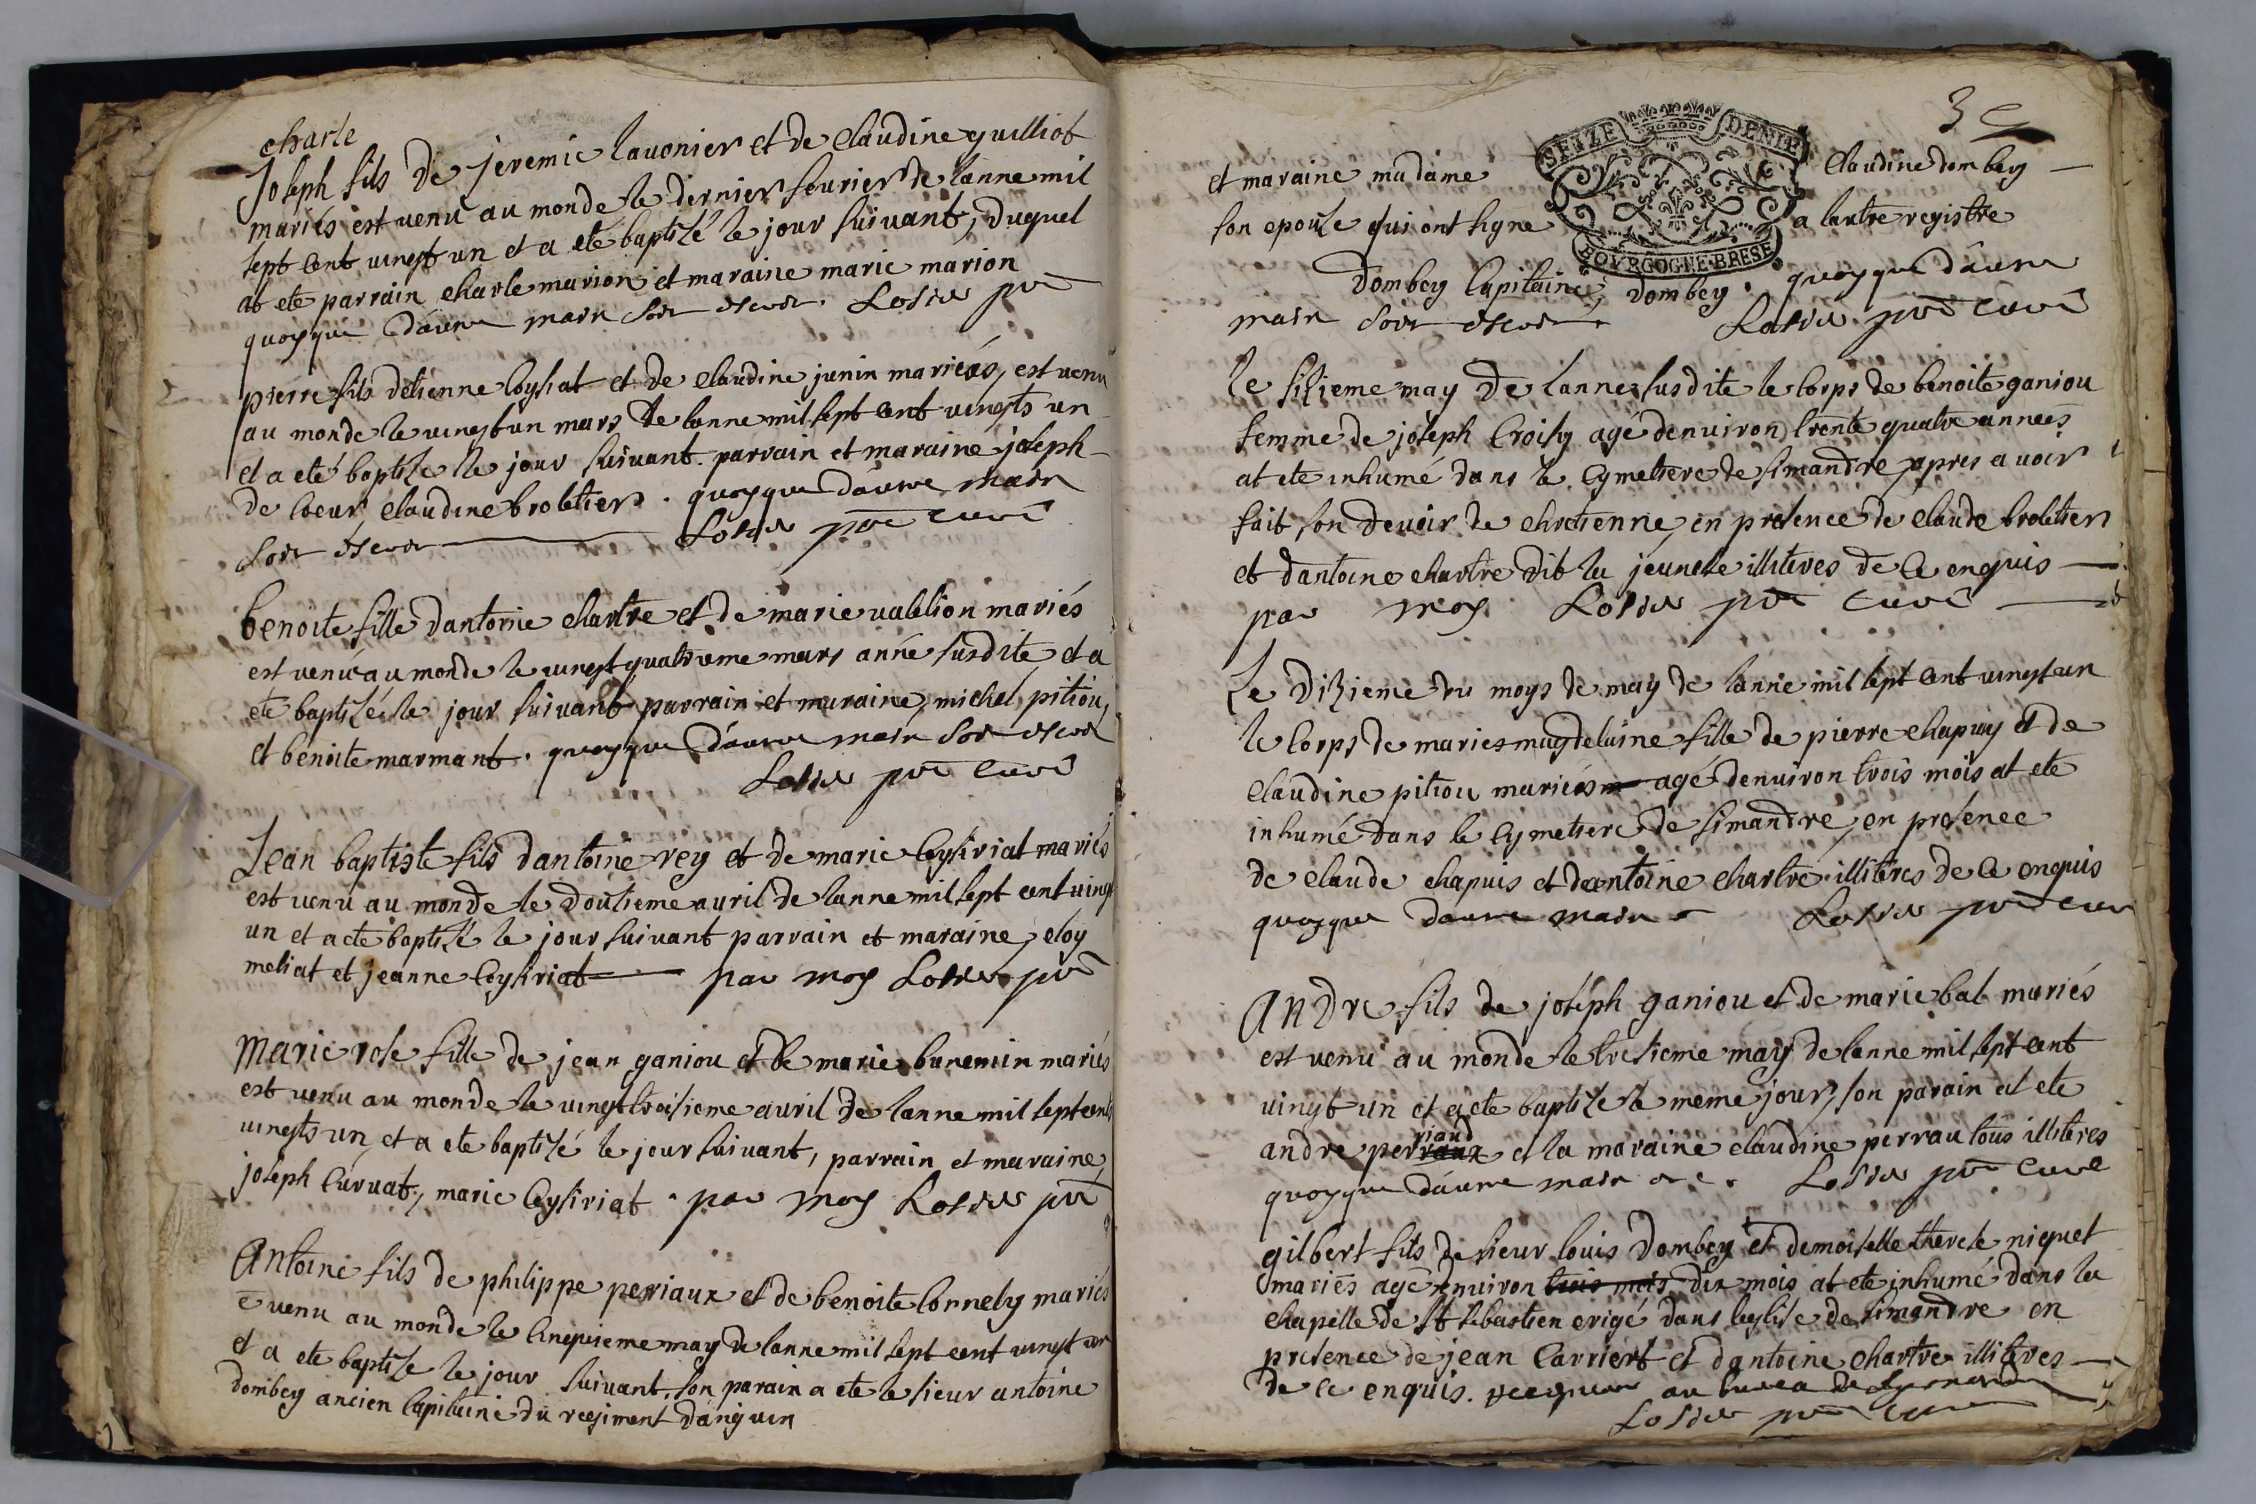 charle
Joseph fils de jeremie lauonier et de claudine guilliot
mariés est venu au monde le dernier feurier de lanne mil
sept cent uingt un et a eté baptizé le jour suiuant, duquel
at ete parrain charle marion et maraine marie marion
quoyque dautre main soit escrit. pre
pierre fils detienne Coysiat et de claudine junin mariés, est uenu
au monde le uingt un mars de lanne mil sept cent uingts un
et a eté baptize le jour suiuant. parrain et maraine joseph
de coeur, claudine broletier. quoyque dautre main
soit escrit pre curé
benoite fille dantoine chartre et de marie uallion mariés
est venu au monde le uingt quatrieme mars anné susdite et a
ete baptizé le jour suiuant parrain et maraine, michel pitiou,
et benoite marmant. quoyque dautre main soit escrit
pre curé
Jean baptiste fils dantoine rey et de marie Ceysiriat mariés
est uenu au monde le dousieme auril de lanne mil sept cent uingt
un et a ete baptizé le jour suiuant parrain et maraine, eloy
meliat et jeanne Ceysiriat par moy pre
Marie rose fille de jean ganiou et de marie banemin mariés
est uenu au monde le uingt troisieme auril de lanne mil sept cent
uingts un, et a ete baptizé le jour suiuant, parrain et maraine,
joseph Curuat, marie Ceysiriat. par moy pre
Antoine fils de philippe perriaux et de benoite Connely mariés
e uenu au monde le cinquieme may de lanne mil sept cent uingt un
et a ete baptize le jour suiuant, son parain a ete le sieur antoine
dombey ancien Capitaine du regiment danguin
3e
SEIZE DENIE
BOVRGOGNE BRESE
et maraine madame claudine dombey
son epouse qui ont signe a lautre registre
Dombey Capitaine, Dombey. quoyque dautre
main soit escrit. pre curé
le sixieme may de lanne susdite le corps de benoite ganiou
femme de joseph Croisy agé denuiron trente quatre annees
at ete inhumé dans le cymetiere de simandre, apres auoir
fait son deuoir de chretienne, en presence de claude broletier
et dantoine chartre dit la jeunesse illiteres de ce enquis
par moy pre curé
Le dixieme du moys de may de lanne mil sept cent uingt un
le corps de marie magdelaine fille de pierre chapuy et de
claudine pitiou mariés agé denuiron trois mois at ete
inhumé dans le cymetiere de simandre, en présence
de claude chapuis et dantoine chartre illiteres de ce enquis
quoyque dautre main pre cure
Andre fils de joséph ganiou et de marie bal mariés
est uenu au monde le tresieme may de lanne mil sept cent
uingt un et a ete baptizé le meme jour, son parain at ete
andre perraux riaud et la maraine claudine perrau tous illiteres
quoyque dautre main &c. pre curé
gilbert fils de sieur louis Dombey et demoiselle therese niquet
mariés agé enuiron trois mois dix mois at ete inhumé dans la
chapelle de St sebastien erigé dans leglise de simandre en
presence de jean Carriert et dantoine chartre illiteres
de ce enquis. au
pre curé